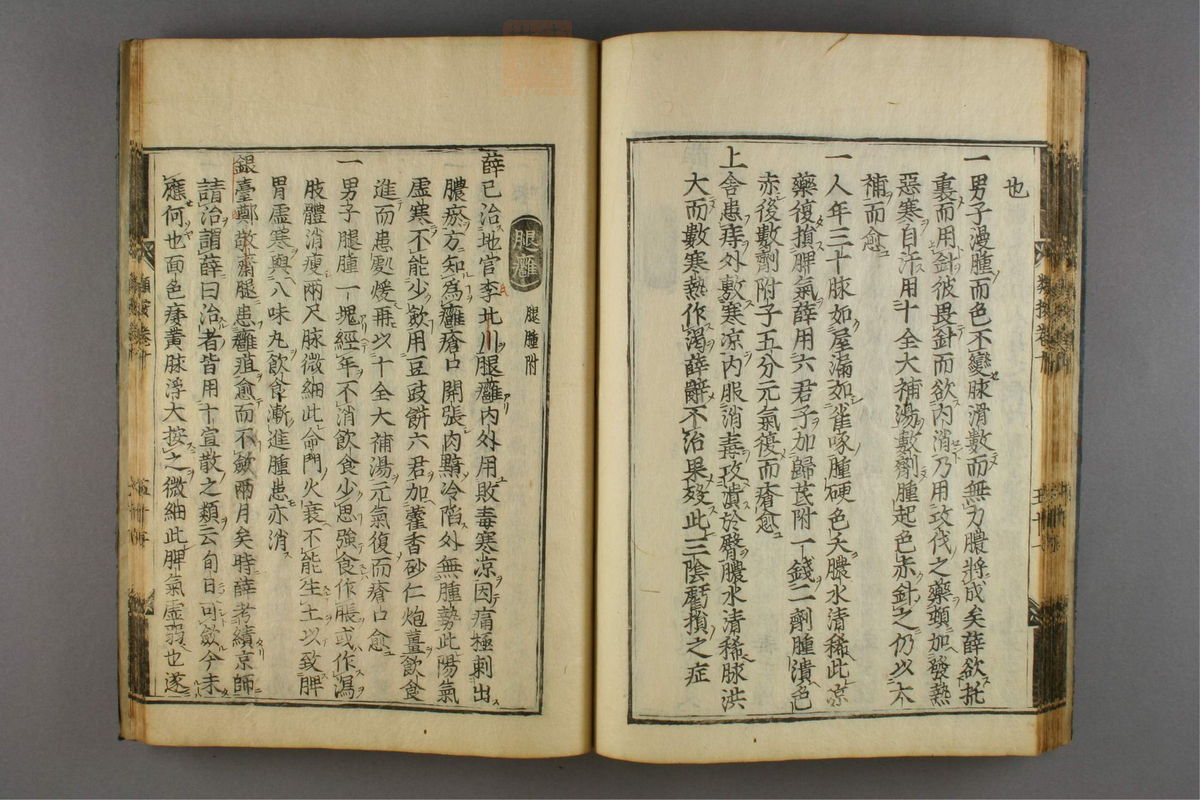 也
一男子漫腫而色不變脉滑數而無力膿將成矣薛欲托
裏而用針彼畏針而欲內消乃用攻伐之藥頭加發熱
惡寒自汗用十全大補湯數劑腫起色赤針之仍以大
補而愈
一人年三十脉如屋漏如雀啄腫硬色夭膿水清稀此凉
藥復損脾氣薛用六君子加歸芪附一錢二劑腫潰色
赤後數劑附子五分元氣復而瘡愈
上舍患痔外敷寒凉內服消毒攻潰於臀膿水清稀脉洪
大而數寒熱作渴薛辭不治果歿此三陰虧損之症
腿癰 腿腫附
薛已治地官李北川腿癰內外用敗毒寒凉因痛極刺出
膿瘀方知為癰瘡口開張肉黯冷陷外無腫勢此陽氣
虛寒不能少飲用豆豉餅六君加藿香砂仁炮薑飲食
進而患處煖再以十全大補湯元氣復而瘡口愈
一男子腿腫一塊經年不消飲食少思強食作脹或作瀉
肢體消瘦兩尺脉微細此命門火衰不能生土以致脾
胃虛寒與八味丸飲食漸進腫患亦消
銀臺鄭敬齋腿患癰疽愈而不斂兩月矣時薛考績京師
請治謂薛曰治者皆用十宣散之類云旬日可斂今未
應何也面色痿黃脉浮大按之微細此脾氣虛弱也遂
類按卷十